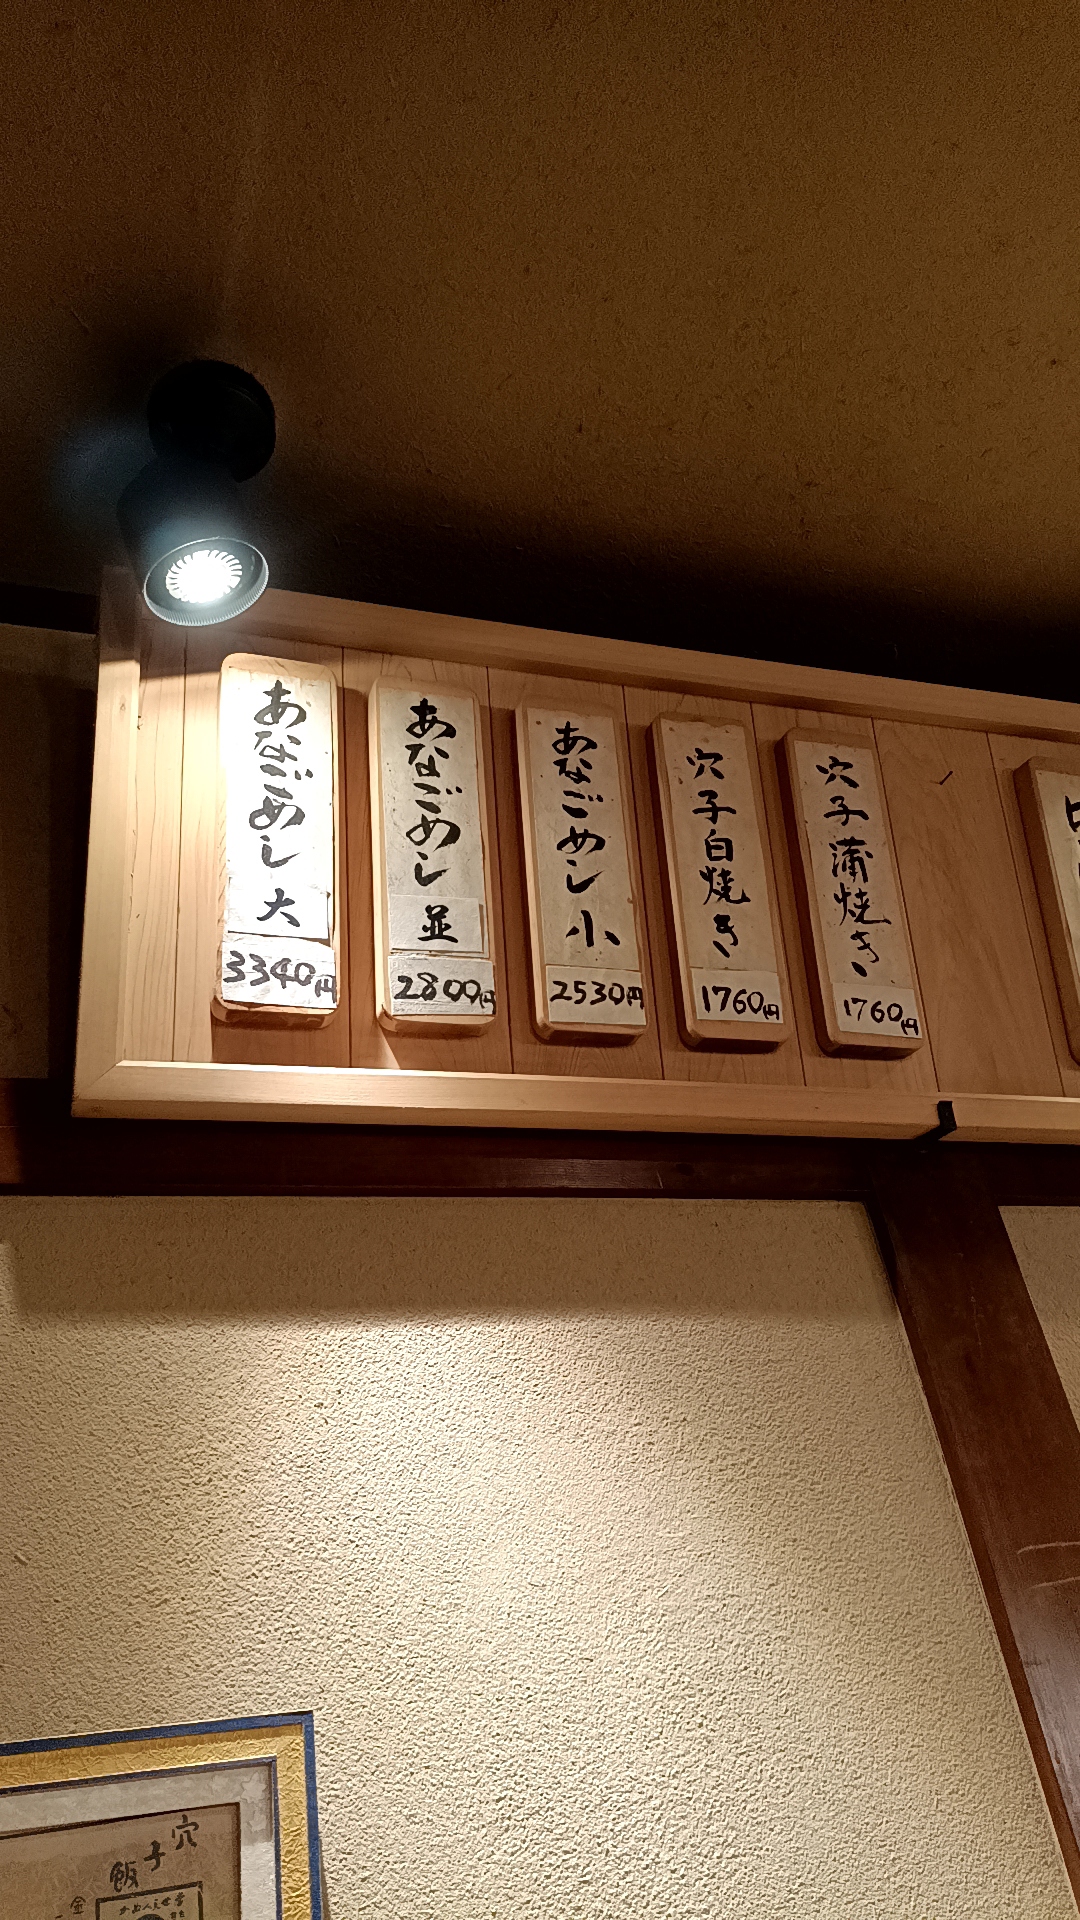 あなごめし 大
3340円
あなごめし 並
2800円
あなごめし 小
2530円
穴子白焼き
1760円
穴子蒲焼き
1760円
穴子飯